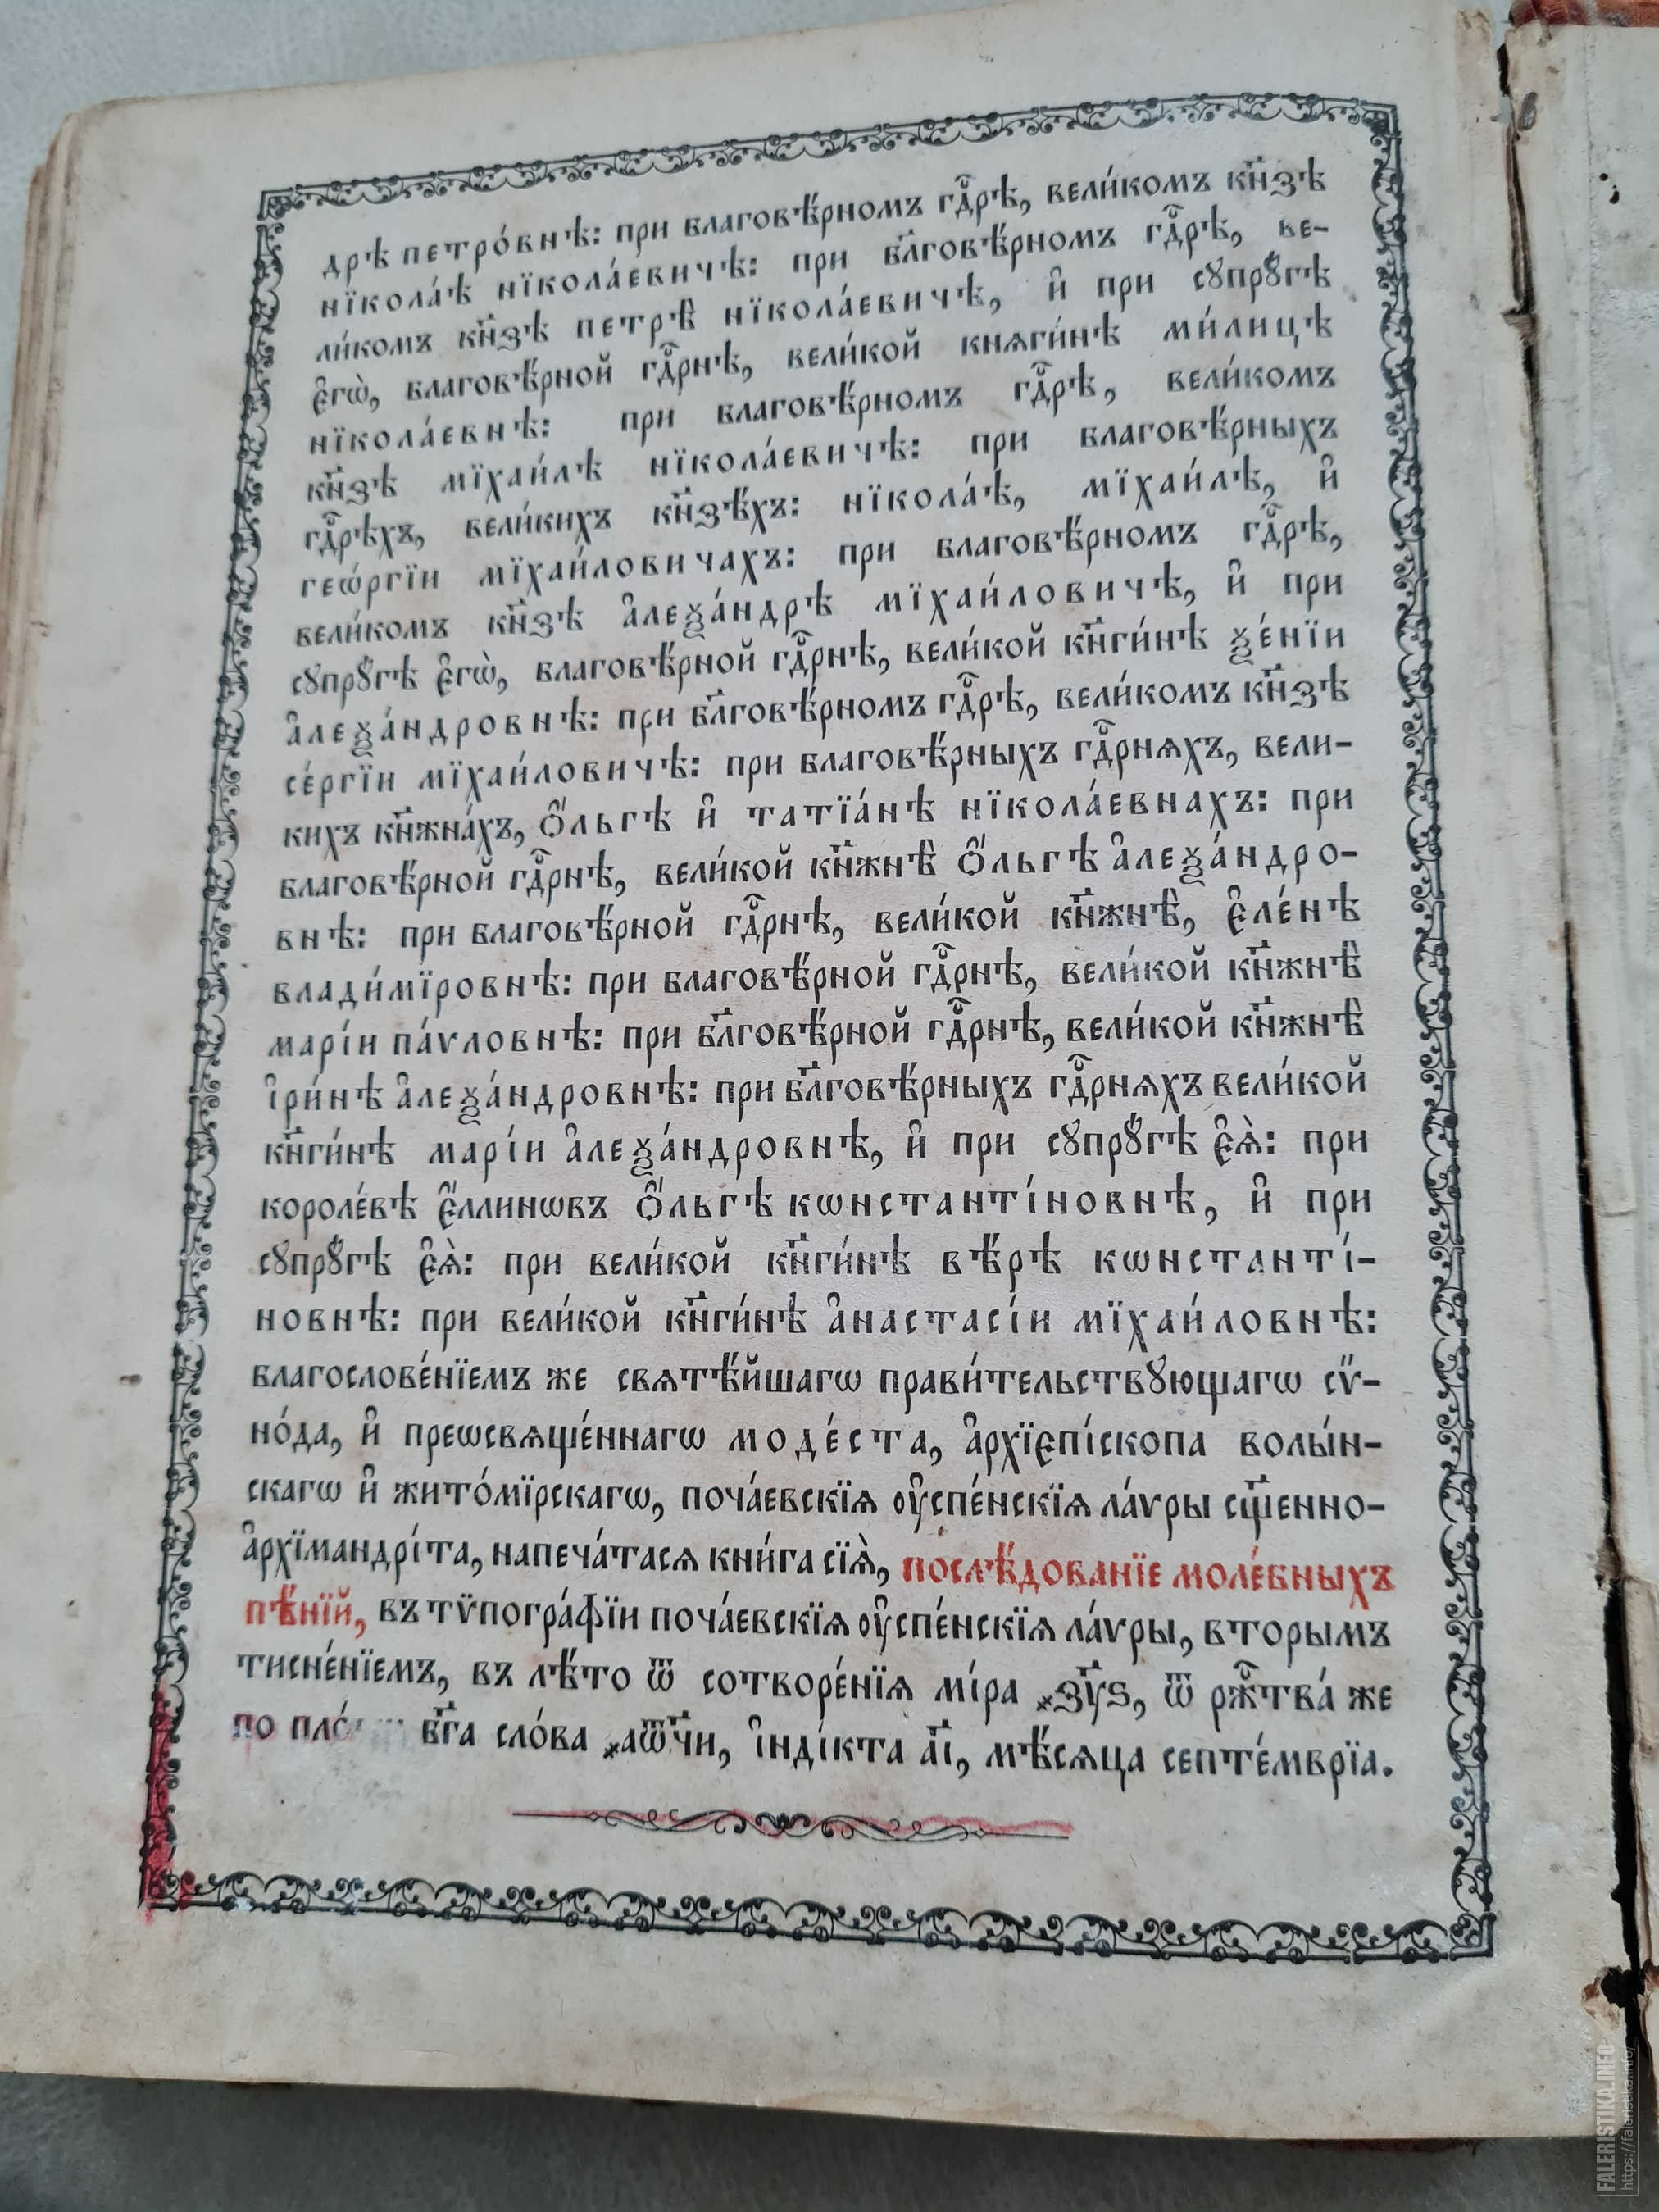 дрѣ петро́внѣ: при благовѣ́рномъ гдⷭ҇рѣ, вели́комъ кн҃зѣ
нїкола́ѣ нїкола́евичѣ: при бл҃говѣ́рномъ гдⷭ҇рѣ, ве-
ли́комъ кн҃зѣ петрѣ̀ нїкола́евичѣ, и҆ при сꙋпрꙋ́гѣ
є҆гѡ̀, благовѣ́рной гдⷭ҇рнѣ, вели́кой княги́нѣ ми́лицѣ
нїкола́евнѣ: при благовѣ́рномъ гдⷭ҇рѣ, вели́комъ
кн҃зѣ мїхаи́лѣ нїкола́евичѣ: при благовѣ́рныхъ
гдⷭ҇рѣхъ, вели́кихъ кн҃зѣ́хъ: нїкола́ѣ, мїхаи́лѣ, и҆
геѡ́ргїи мїхаи́ловичахъ: при благовѣ́рномъ гдⷭ҇рѣ,
вели́комъ кн҃зѣ а҆леѯа́ндрѣ мїхаи́ловичѣ, и҆ при
сꙋпрꙋ́гѣ є҆гѡ̀, благовѣ́рной гдⷭ҇рнѣ, вели́кой кн҃ги́нѣ ѯе́нїи
а҆леѯа́ндровнѣ: при бл҃говѣ́рномъ гдⷭ҇рѣ, вели́комъ кн҃зѣ
се́ргїи мїхаи́ловичѣ: при благовѣ́рныхъ гдⷭ҇рняхъ, вели-
кихъ кн҃жна́хъ, Ѻ҆́льгѣ и҆ татїа́нѣ нїкола́евнахъ: при
благовѣ́рной гдⷭ҇рнѣ, вели́кой кн҃жнѣ̀ Ѻ҆́льгѣ а҆леѯа́ндро-
внѣ: при благовѣ́рной гдⷭ҇рнѣ, вели́кой кн҃жнѣ̀, є҆ле́нѣ
влади́мїровнѣ: при благовѣ́рной гдⷭ҇рнѣ, вели́кой кн҃жнѣ̀
марі́и па́ѵловнѣ: при бл҃говѣ́рной гдⷭ҇рнѣ, вели́кой кн҃жнѣ̀
і҆ри́нѣ а҆леѯа́ндровнѣ: при бл҃говѣ́рныхъ гдⷭ҇рняхъ вели́кой
кн҃ги́нѣ марі́и а҆леѯа́ндровнѣ, и҆ при сꙋпрꙋ́гѣ є҆ѧ̀: при
короле́вѣ є҆́ллинѡвъ Ѻ҆́льгѣ кѡнстанті́новнѣ, и҆ при
сꙋпрꙋ́гѣ є҆ѧ̀: при вели́кой кн҃ги́нѣ вѣ́рѣ кѡнстанті́-
новнѣ: при вели́кой кн҃ги́нѣ а҆настасі́и мїхаи́ловнѣ:
благослове́нїемъ же святѣ́йшагѡ прави́тельствꙋющагѡ сѵ́-
но́да, и҆ преѡсвяще́ннагѡ моде́ста, а҆рхїепі́скопа волы́н-
скагѡ и҆ жито́мїрскагѡ, поча́евскїѧ ᲂу҆спе́нскїѧ ла́ѵры сщ҃енно-
а҆рхїмандрі́та, напеча́тасѧ кни́га сїѧ̀, послѣ́дованїе моле́бныхъ
пѣ́нїй, въ тѷпогра́фїи поча́евскїѧ ᲂу҆спе́нскїѧ ла́ѵры, вторымъ
тисне́нїемъ, въ лѣ́то ѿ сотворе́нїѧ мі́ра ҂зу҃ѕ, ѿ рж҇тва́ же
по бг҃а сло́ва ҂аѿ҃чи, і҆нді́кта а҃і, мѣ́сяца септе́мврїа.
FALERISTIKA.INFO
https://faleristika.info/